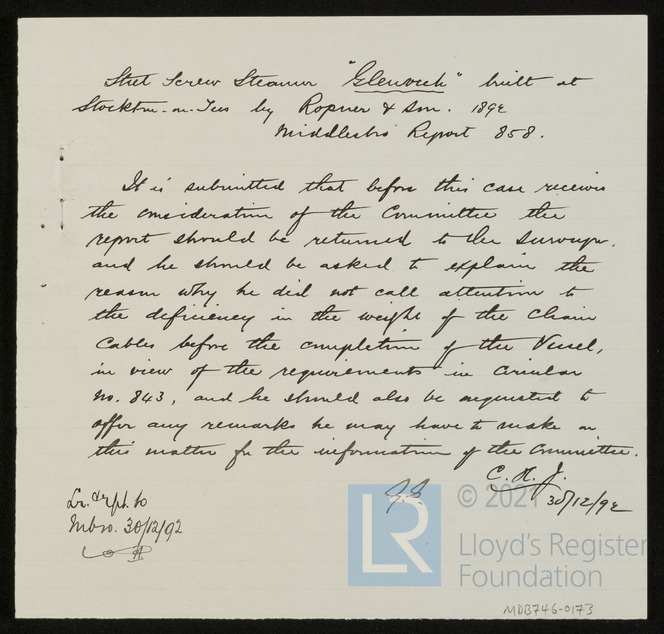 Steel Screw Steamer "Glenvech" built at
Stockton-on-Tees by Ropner & Son. 1892
Middlesbro Report 858.
It is submitted that before this case receives
the consideration of the Committee the
report should be returned to the Surveyor,
and he should be asked to explain the
reason why he did not call attention to
the deficiency in the weight of the Chain
Cables before the completion of the Vessel,
in view of the requirements in Circular
No. 843, and he should also be requested to
offer any remarks he may have to make on
this matter for the information of the Committee.
C. H. J.
30/12/92
J.S.
Lr. & rpt. to
Mbro. 30/12/92
© 2021
LR
Lloyd's Register
Foundation
MDB746-0173